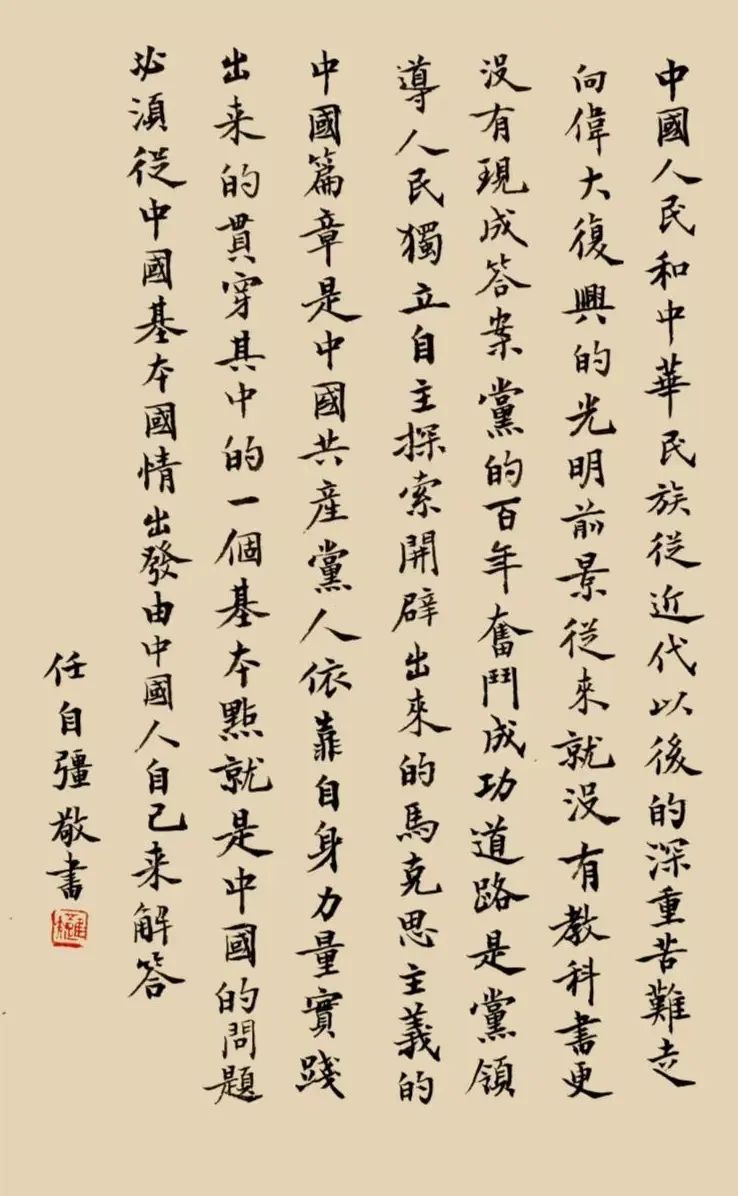 中國人民和中華民族從近代以後的深重苦難走
向偉大復興的光明前景從来就没有教科書更
没有現成答案黨的百年奮鬥成功道路是黨領
導人民獨立自主探索開辟出来的馬克思主義的
中國篇章是中國共産黨人依靠自身力量實踐
出来的貫穿其中的一個基本點就是中國的問題
必須從中國基本國情出發由中國人自己来解答
任自彊敬書